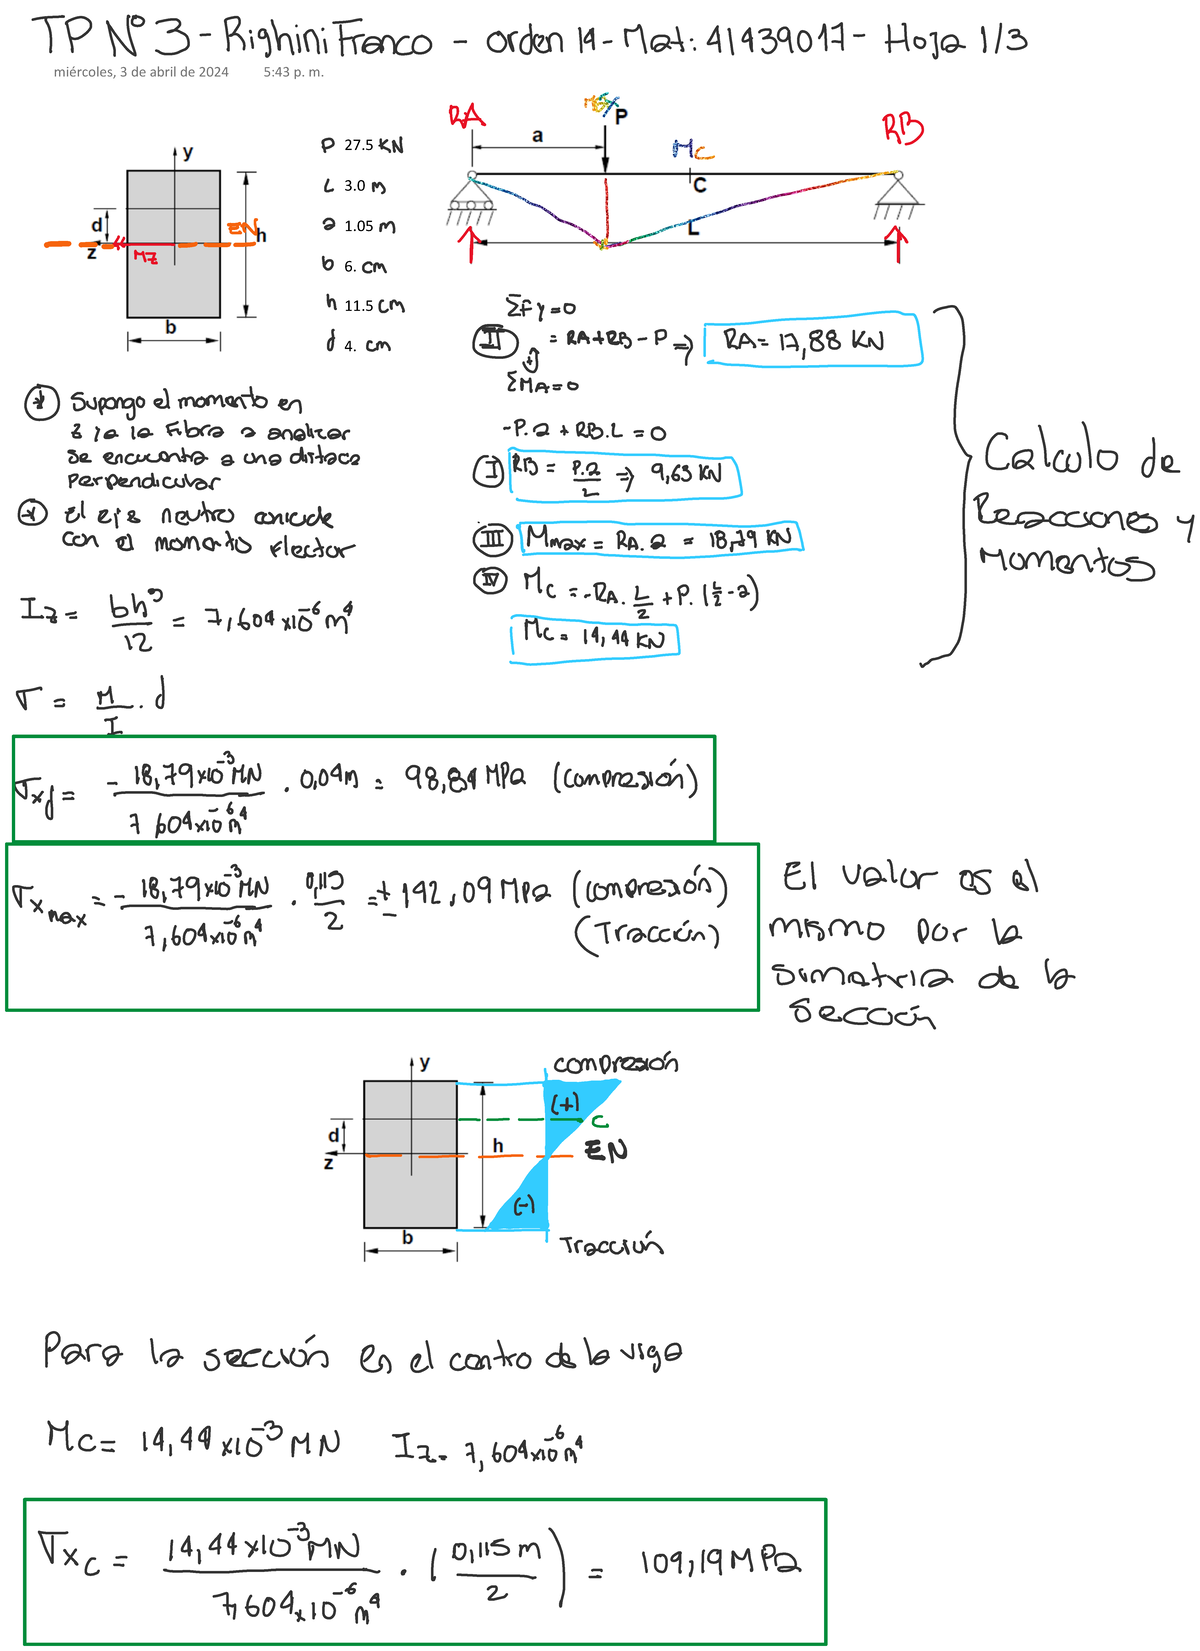 TP Nº 3 - Righini Franco - orden 14 - Mat: 41439017 - Hoja 1/3
miércoles, 3 de abril de 2024 5:43 p. m.
RA
P
RB
a
MC
C
L
y
d
EN
h
z
MZ
b
P 27.5 KN
L 3.0 m
a 1.05 m
b 6. cm
h 11.5 cm
d 4. cm
ΣFy=0
II = RA+RB-P => RA= 17,88 KN
ΣMA=0
-P.a + RB.L = 0
I RB = P.a/L => 9,63 KN
III Mmax = RA.a = 18,79 KN
IV Mc = -RA. L/2 + P. (L/2 - a)
Mc = 14,44 KN
Calculo de
Reacciones y
Momentos
Supongo el momento en
la Fibra a analizar
se encuentra a una
perpendicular
El eje neutro
con el momento Flector
Iz = bh³/12 = 7,604x10⁻⁶ m⁴
σ = M/I . d
σxd = - 18,79x10⁻³ MN / 7,604x10⁻⁶ m⁴ . 0,04m = 98,84 MPa (compresión)
σx max = - 18,79x10⁻³ MN / 7,604x10⁻⁶ m⁴ . 0,115/2 = ± 142,09 MPa (compresión)
(Tracción)
El valor es el
mismo por la
simetria de la
sección
y
compresión
(+)
C
d
h
EN
z
(-)
b
Tracción
Para la sección en el centro de la viga
Mc= 14,44 x10⁻³ MN Iz= 7,604x10⁻⁶ m⁴
σxc = 14,44x10⁻³ MN / 7,604x10⁻⁶ m⁴ . (0,115 m / 2) = 109,19 MPa